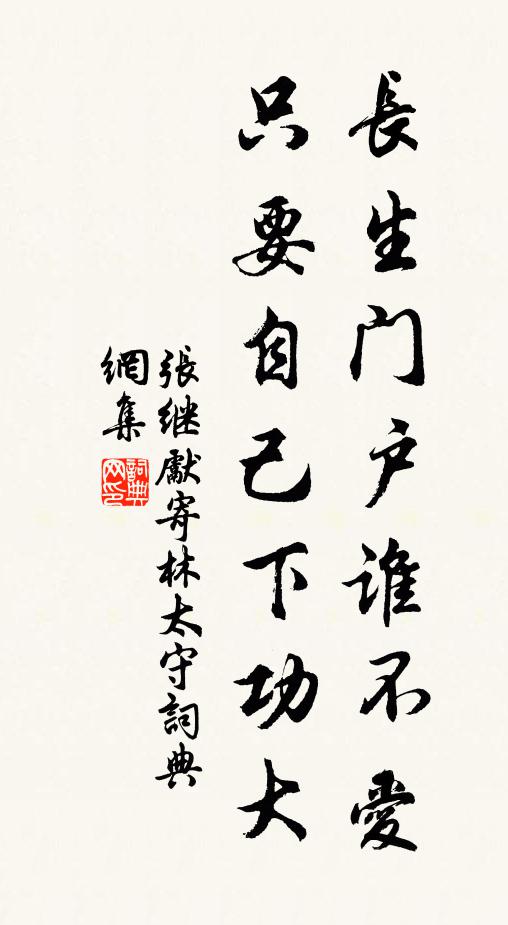 長生门户誰不愛
只要自己下功大
張继獻寄林太守詞典
網集
詞典
网印